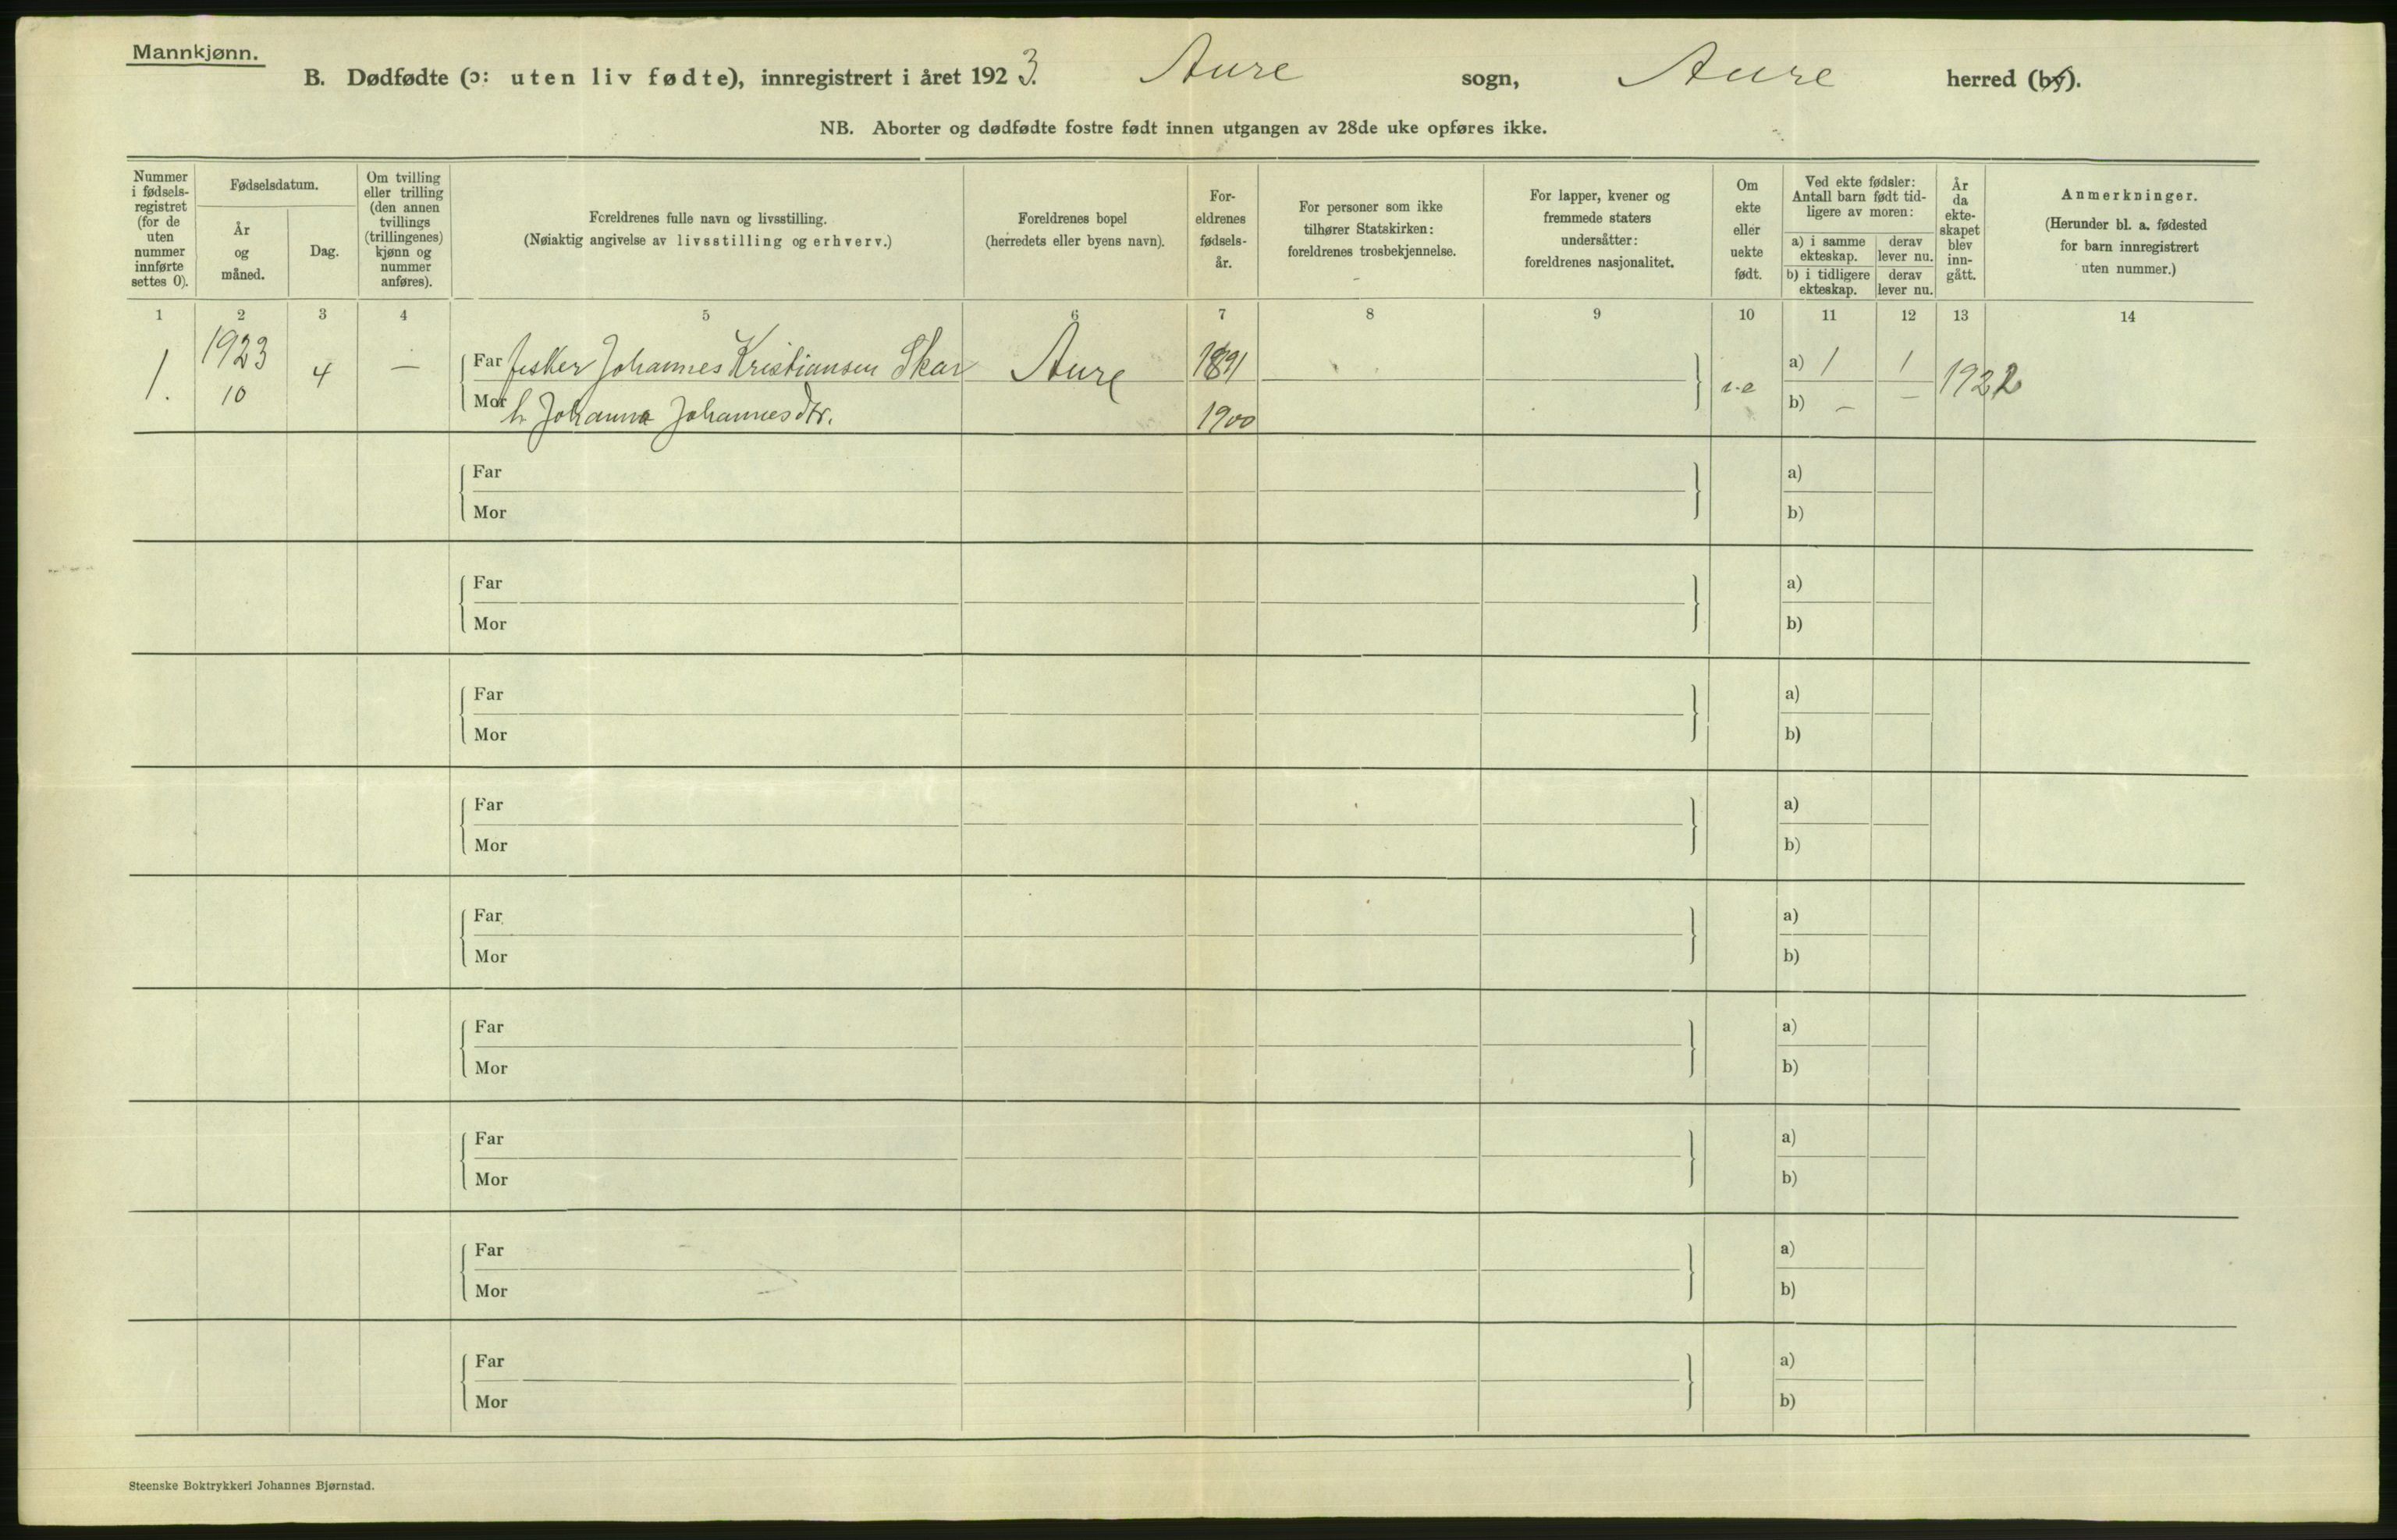 Mannkjønn.
B. Dødfødte (ɔ: uten liv fødte), innregistrert i året 1923. Aure sogn, Aure herred (by).
NB. Aborter og dødfødte fostre født innen utgangen av 28de uke opføres ikke.
Nummer
i fødsels-
registret
(for de
uten
nummer
innførte
settes 0).
Fødselsdatum.
År
og
måned.
Dag.
Om tvilling
eller trilling
(den annen
tvillings
(trillingenes)
kjønn og
nummer
anføres).
Foreldrenes fulle navn og livsstilling.
(Nøiaktig angivelse av livsstilling og erhverv.)
Foreldrenes bopel
(herredets eller byens navn).
For-
eldrenes
fødsels-
år.
For personer som ikke
tilhører Statskirken:
foreldrenes trosbekjennelse.
For lapper, kvener og
fremmede staters
undersåtter:
foreldrenes nasjonalitet.
Om
ekte
eller
uekte
født.
Ved ekte fødsler:
Antall barn født tid-
ligere av moren:
a) i samme
ekteskap.
derav
lever nu.
b) i tidligere
ekteskap.
derav
lever nu.
År
da
ekte-
skapet
blev
inn-
gått.
Anmerkninger.
(Herunder bl. a. fødested
for barn innregistrert
uten nummer.)
1 2 3 4 5 6 7 8 9 10 11 12 13 14
1. 1923 10 4 —
Far fisker Johannes Kristiansen Skar Aure 1891 a) 1 1 1922
Mor h. Johanna Johannesdtr. 1900 b) — —
Far a)
Mor b)
Far a)
Mor b)
Far a)
Mor b)
Far a)
Mor b)
Far a)
Mor b)
Far a)
Mor b)
Far a)
Mor b)
Far a)
Mor b)
Far a)
Mor b)
Steenske Boktrykkeri Johannes Bjørnstad.